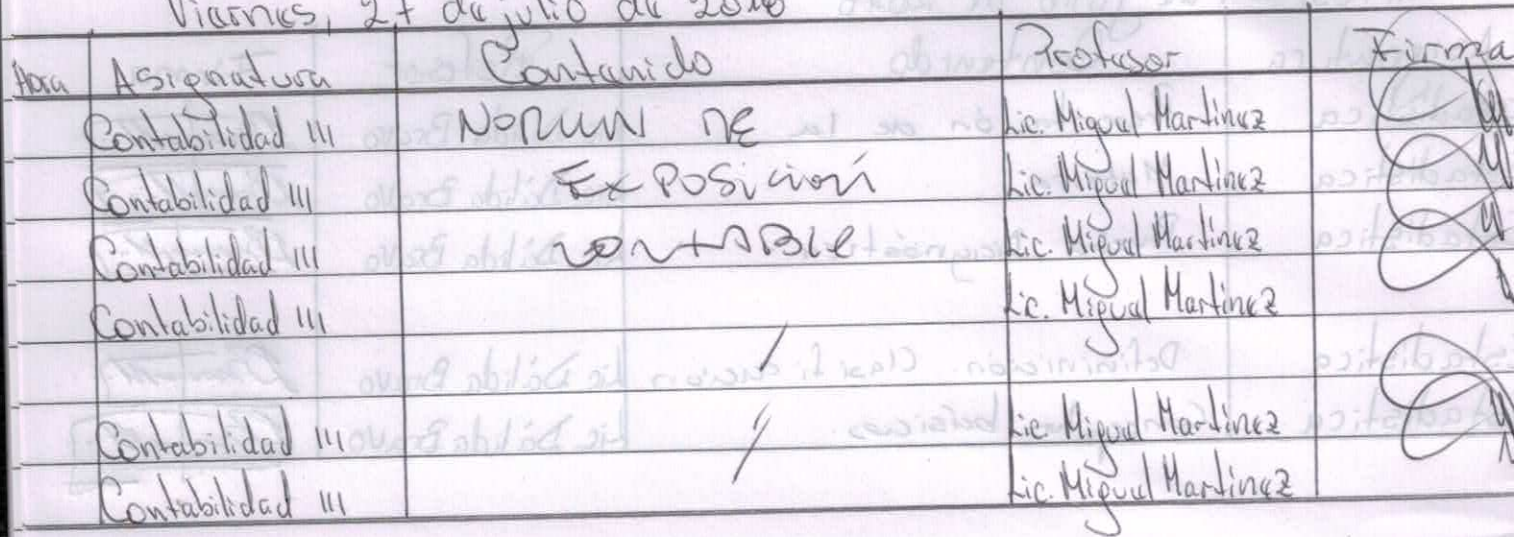 Viernes, 27 de julio de
Hora Asignatura Contenido Profesor Firma
Contabilidad III NORMA DE Lic. Miguel Martinez
Contabilidad III EXPOSICIÓN Lic. Miguel Martinez
Contabilidad III CONTABLE Lic. Miguel Martinez
Contabilidad III Lic. Miguel Martinez
Contabilidad III Lic. Miguel Martinez
Contabilidad III Lic. Miguel Martinez